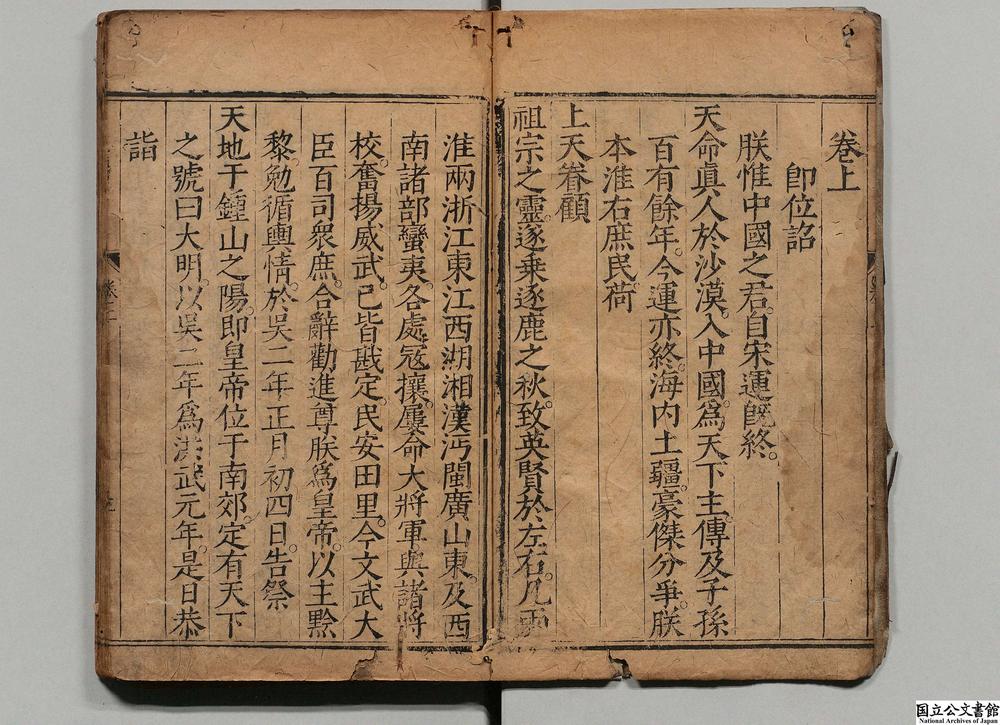 卷上
即位詔
朕惟中國之君。自宋運旣終。
天命眞人於沙漠。入中國爲天下主。傳及子孫
百有餘年。今運亦終。海內土疆。豪傑分爭。朕
本淮右庶民。荷
上天眷顧
祖宗之靈。逐乘逐鹿之秋。致英賢於左右。凡兩
淮兩浙江東江西湖湘漢沔閩廣山東。及西
南諸部蠻夷。各處寇攘。屢命大將軍與諸將
校。奮揚威武。已皆戡定。民安田里。今文武大
臣百司衆庶。合辭勸進。尊朕爲皇帝。以主黔
黎。勉循輿情。於吳二年正月初四日。告祭
天地于鍾山之陽。即皇帝位于南郊。定有天下
之號曰大明。以吳二年爲洪武元年。是日恭
詣
国立公文書館
National Archives of Japan